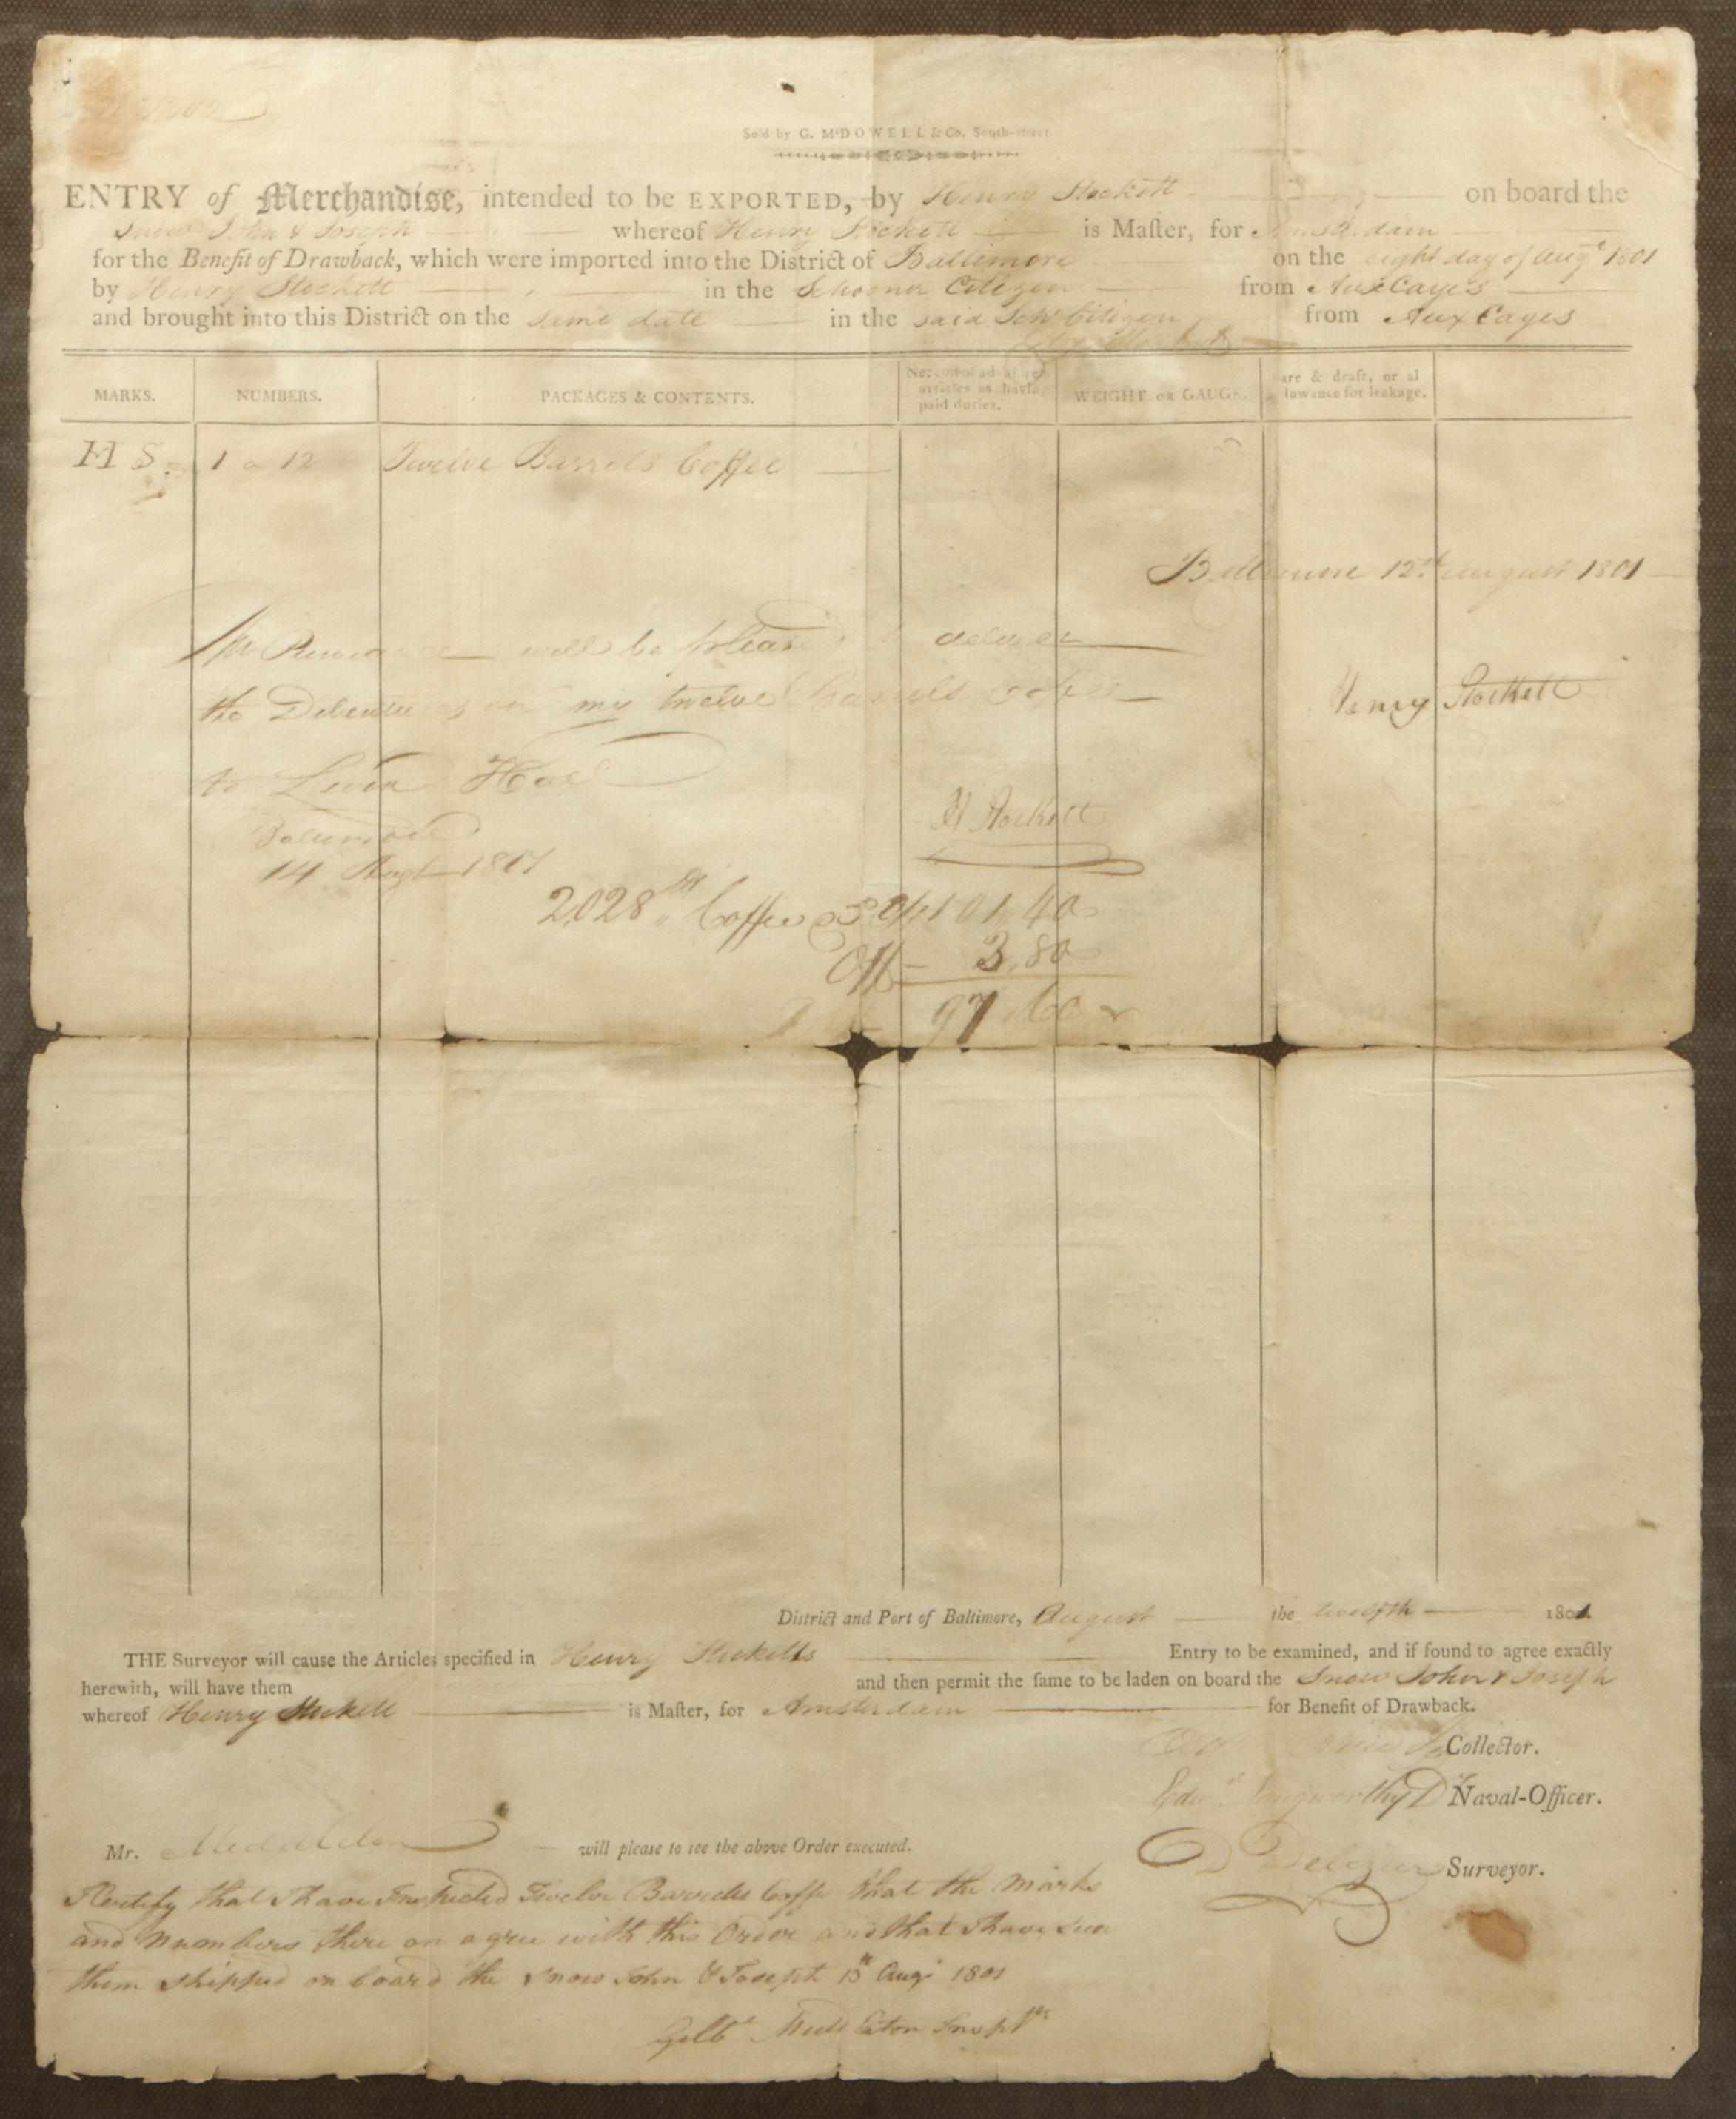 Sold by G. McDOWELL & Co. South-street
ENTRY of Merchandise, intended to be EXPORTED, by Henry Stockett on board the
Snow John & Joseph whereof Henry Stockett is Master, for Amsterdam
for the Benefit of Drawback, which were imported into the District of Baltimore on the eight day of Augt 1801
by Henry Stockett in the Schooner Citizen from Aux Cayes
and brought into this District on the same date in the said Schr Citizen from Aux Cayes
MARKS. NUMBERS. PACKAGES & CONTENTS. articles as having paid duties. WEIGHT or GAUGE. are & draft, or al lowance for leakage.
H S. 1 a 12 Twelve Barrels Coffee
Baltimore 12th August 1801
Mr will be please to deliver
the Debentures on my twelve barrels coffee
Henry Stockett
to Levin Hall
H Stockett
Baltimore
14 Augt 1801
2028 lb Coffee @ 5 101,40
Off 3,80
97,60
District and Port of Baltimore, August the twelfth 1801
THE Surveyor will cause the Articles specified in Henry Stocketts Entry to be examined, and if found to agree exactly
herewith, will have them and then permit the same to be laden on board the Snow John & Joseph
whereof Henry Stockett is Master, for Amsterdam for Benefit of Drawback.
Collector.
Edwd Langworthy D Naval-Officer.
Mr. will please to see the above Order executed.
D Delozier Surveyor.
I Certify that I have Inspected Twelve Barrells Coffe that the Marks
and Numbers there on agree with this Order and that I have seen
them shipped on board the Snow John & Joseph 15th Augt 1801
Gilbt Middleton Insptr